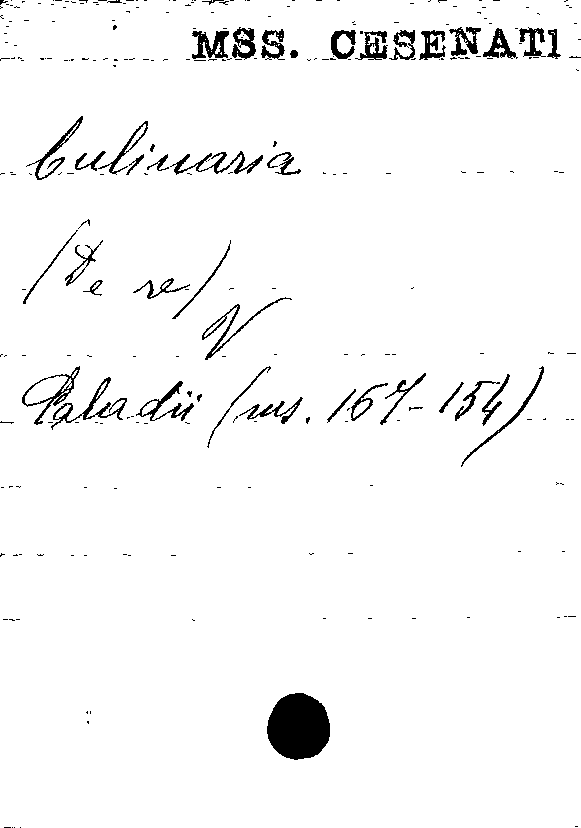 MSS. CESENATI
Culinaria
(De re)
V
Paladii (ms. 167-154)